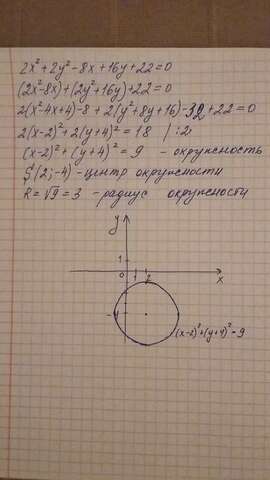 2x²+2y²-8x+16y+22=0
(2x²-8x)+(2y²+16y)+22=0
2(x²-4x+4)-8+2(y²+8y+16)-32+22=0
2(x-2)²+2(y+4)²=18 |:2
(x-2)²+(y+4)²=9 - окружность
S(2;-4)-центр окружности
R=√9=3 - радиус окружности
y
1
0 1 2 x
-4
(x-2)²+(y+4)²=9